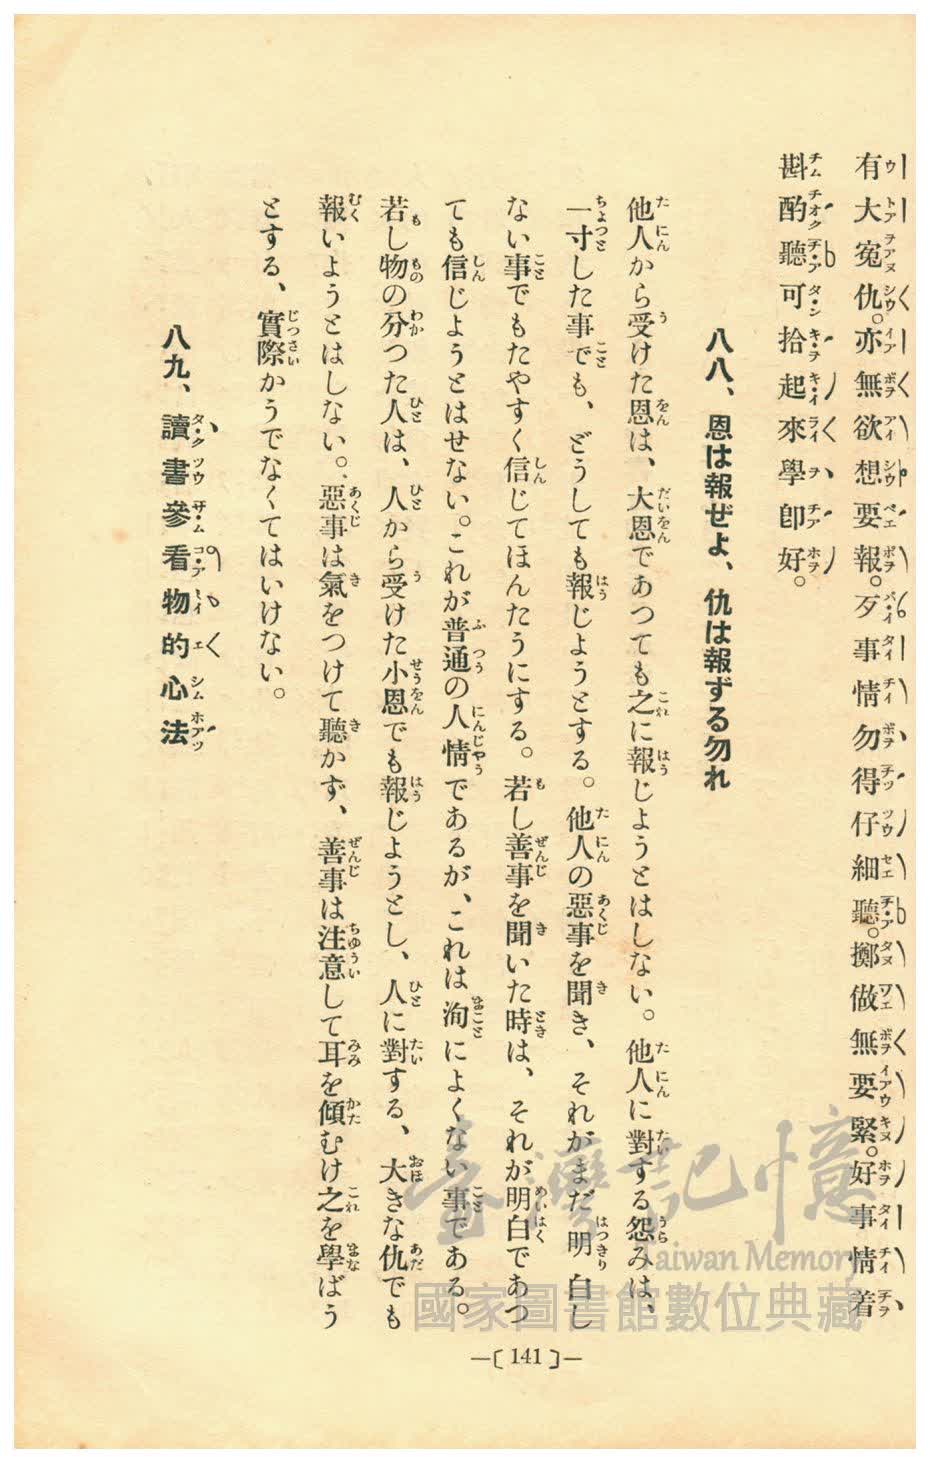 有大寃仇。亦無欲想要報。歹事情勿得仔細聽。擲做無要緊。好事情着
斟酌聽可拾起來學卽好。
八八、恩は報ぜよ、仇は報ずる勿れ
他人から受けた恩は、大恩であつても之に報じようとはしない。他人に對する怨みは、
一寸した事でも、どうしても報じようとする。他人の惡事を聞き、それがまだ明白し
ない事でもたやすく信じてほんたうにする。若し善事を聞いた時は、それが明白であつ
ても信じようとはせない。これが普通の人情であるが、これは洵によくない事である。
若し物の分つた人は、人から受けた小恩でも報じようとし、人に對する、大きな仇でも
報いようとはしない。惡事は氣をつけて聽かず、善事は注意して耳を傾むけ之を學ばう
とする、實際かうでなくてはいけない。
八九、讀書參看物的心法
—〔141〕—
臺灣記憶
Taiwan Memory
國家圖書館數位典藏